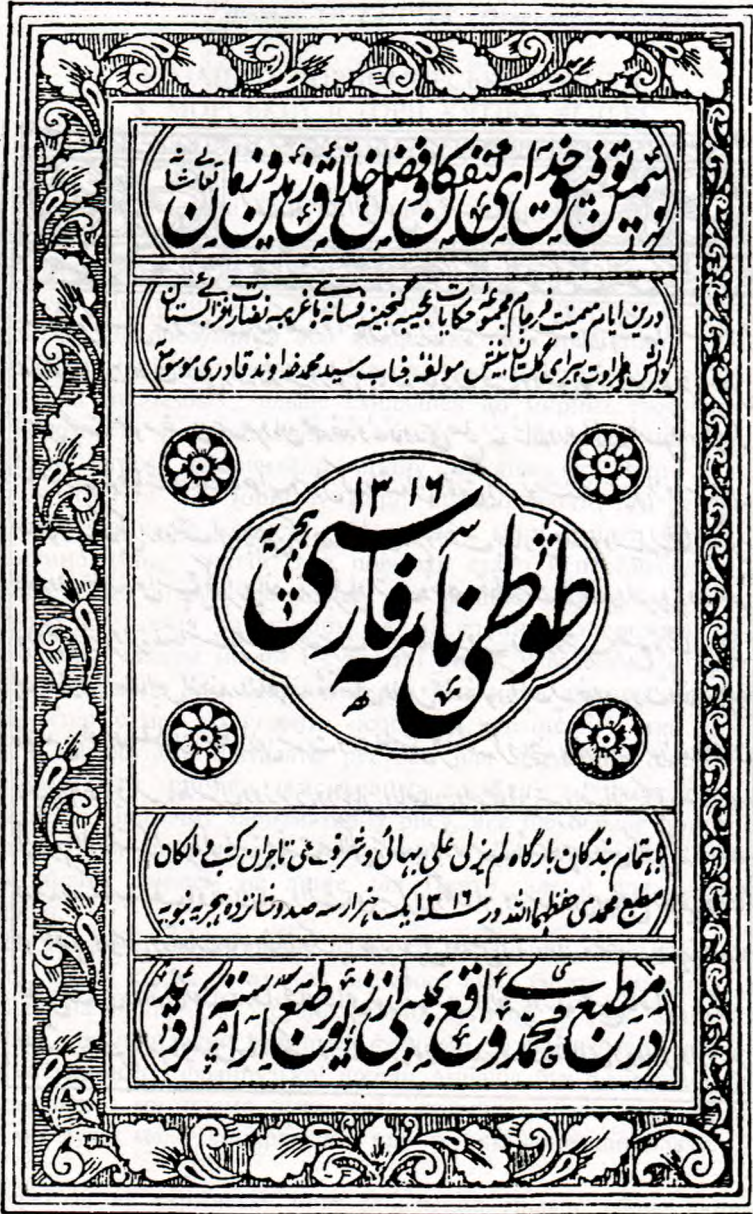 بیمن توفیق خدای کن فکان و فضل خلاق زمین و زمان تعالی شانه
درین ایام میمنت فرجام مجموعه حکایات عجیبه گنجینه فسانهای غریبه نضارت افزائے بستان
دانش و طراوت پیرای گلستان بینش مولفه جناب سید محمد خداوند قادری موسوم به
۱۳۱۶
هجریه
طوطی نامه فارسی
باهتمام بندگان بارگاه لم یزلی علی بهائی و شرف علی تاجران کتب و مالکان
مطبع محمدی حفظهما الله در سنه ۱۳۱۶ یک هزار سه صد و شانزده هجریه نبویه
در مطبع محمدی واقع بمبئی از زیور طبع آراسته گردید